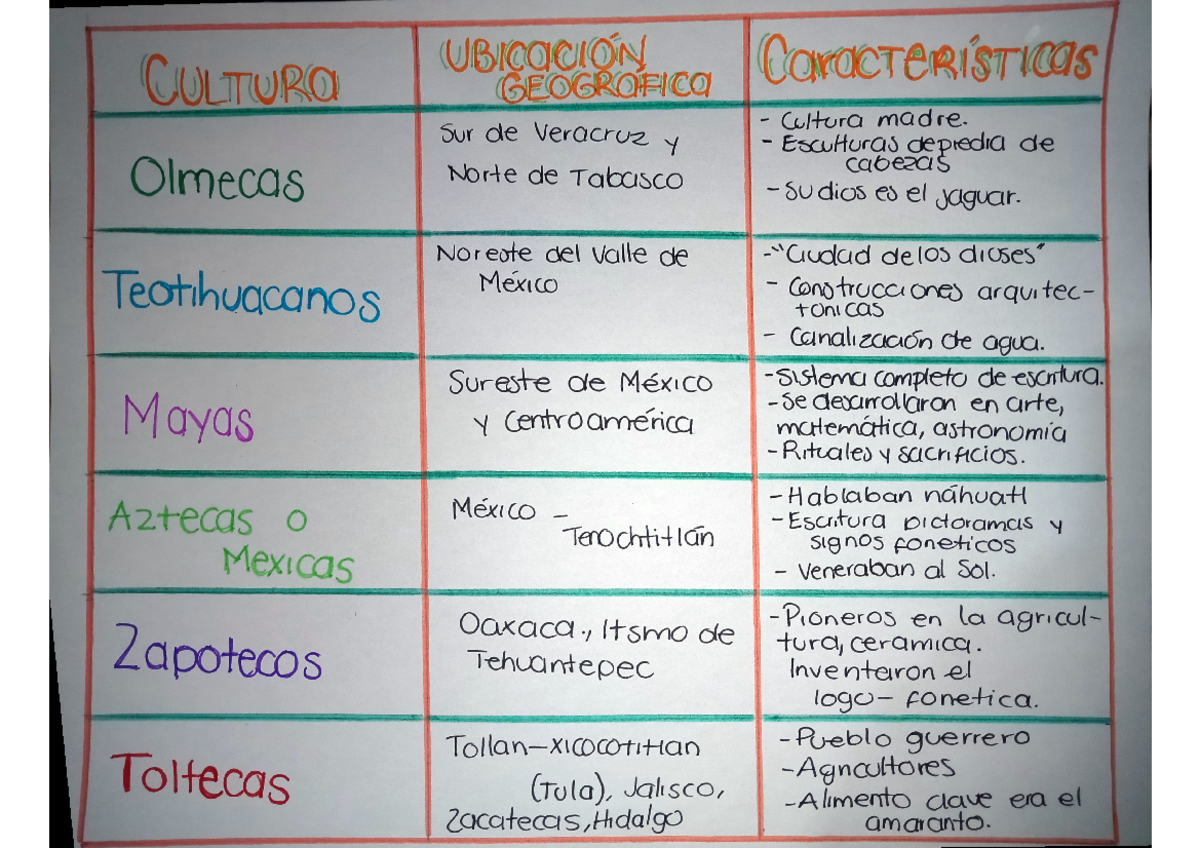 CULTURA
UBICACIÓN
GEOGRAFICA
Características
Olmecas
Sur de Veracruz y
Norte de Tabasco
- Cultura madre.
- Esculturas depiedra de
cabezas
- Su dios es el jaguar.
Teotihuacanos
Noreste del Valle de
México
- "Ciudad de los dioses"
- Construcciones arquitec-
tonicas
- Canalización de agua.
Mayas
Sureste de México
y Centroamérica
- Sistema completo de escritura.
- Se desarrollaron en arte,
matemática, astronomía
- Rituales y sacrificios.
Aztecas o
Mexicas
México -
Tenochtitlán
- Hablaban náhuatl
- Escritura pictoramas y
signos foneticos
- Veneraban al Sol.
Zapotecos
Oaxaca., Itsmo de
Tehuantepec
- Pioneros en la agricul-
tura, ceramica.
Inventaron el
logo- fonetica.
Toltecas
Tollan-xicocotitlan
(Tula), Jalisco,
Zacatecas, Hidalgo
- Pueblo guerrero
- Agricultores
- Alimento clave era el
amaranto.